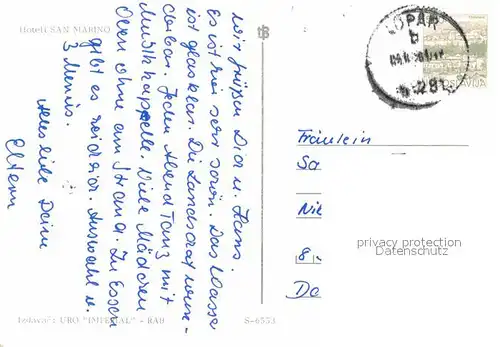 Hoteli SAN MARINO
Wir grüßen Dich u. Hans.
Es ist hier sehr schön. Das Wasser
ist glasklar. Die Landschaft wunder-
bar. Jeden Abend Tanz mit
Musikkapelle. Viele Mädchen
Oben ohne am Strand. Zu Essen
gibt es reichlich. Auswahl v.
3 Menüs.
Alles liebe Deine
Eltern
LOPAR
b
JUGOSLAVIJA
Fräulein
Sa
Nik
8
Do
privacy protection
Datenschutz
Izdavač: URO "IMPERIAL" - RAB
S-6553